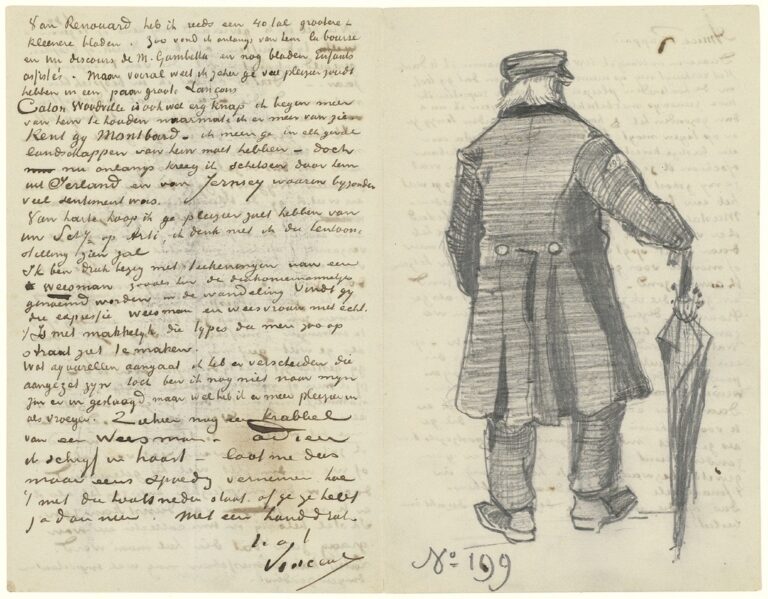 Van Renouard heb ik reeds een 40 tal grootere &
kleinere bladen. Zoo vond ik onlangs van hem La bourse
en un discours de M. Gambetta en nog bladen Enfants
assistés. Maar vooral weet ik zeker ge veel pleizier zoudt
hebben in een paar groote Lançons
Caton Woodville is ook wel erg knap, ik begin meer
van hem te houden naarmate ik er meer van zie.
Kent gy Montbard. ik meen ge in elk geval
landschappen van hem moet hebben – doch
nu onlangs kreeg ik schetsen door hem
uit Ierland en van Jernsey waarin byzonder
veel sentiment was.
Van harte hoop ik ge pleizier zult hebben van
uw op Arti, ik denk niet ik die tentoon-
stelling zien zal
Ik ben druk bezig met teekeningen van een
weesman zooals hier de diakoniemannetjes
genoemd worden in de wandeling. Vindt gy
die expressie weesman en weesvrouw niet echt.
't Is niet makkelyk, die types die men zoo op
straat ziet te maken.
Wat aquarellen aangaat ik heb er verscheiden die
aangezet zyn toch ben ik nog niet naar myn
zin er in geslaagd, maar wel heb ik er meer pleizier in
als vroeger. Ziehier nog een krabbel
van een weesman – adieu
ik schryf in haast – laat me dus
maar eens spoedig vernemen hoe
't met die houtsneden staat. of ge ze hebt
ja dan neen Met een handdruk.
t. à t.
Vincent
No 199